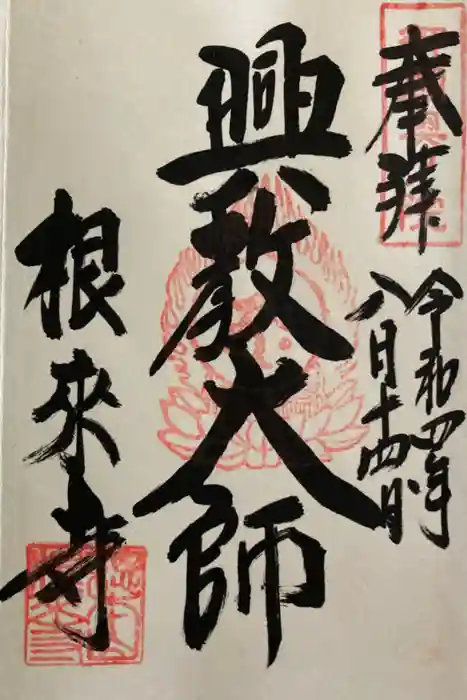 奉拝
令和四年
八月十四日
興教大師
根来寺